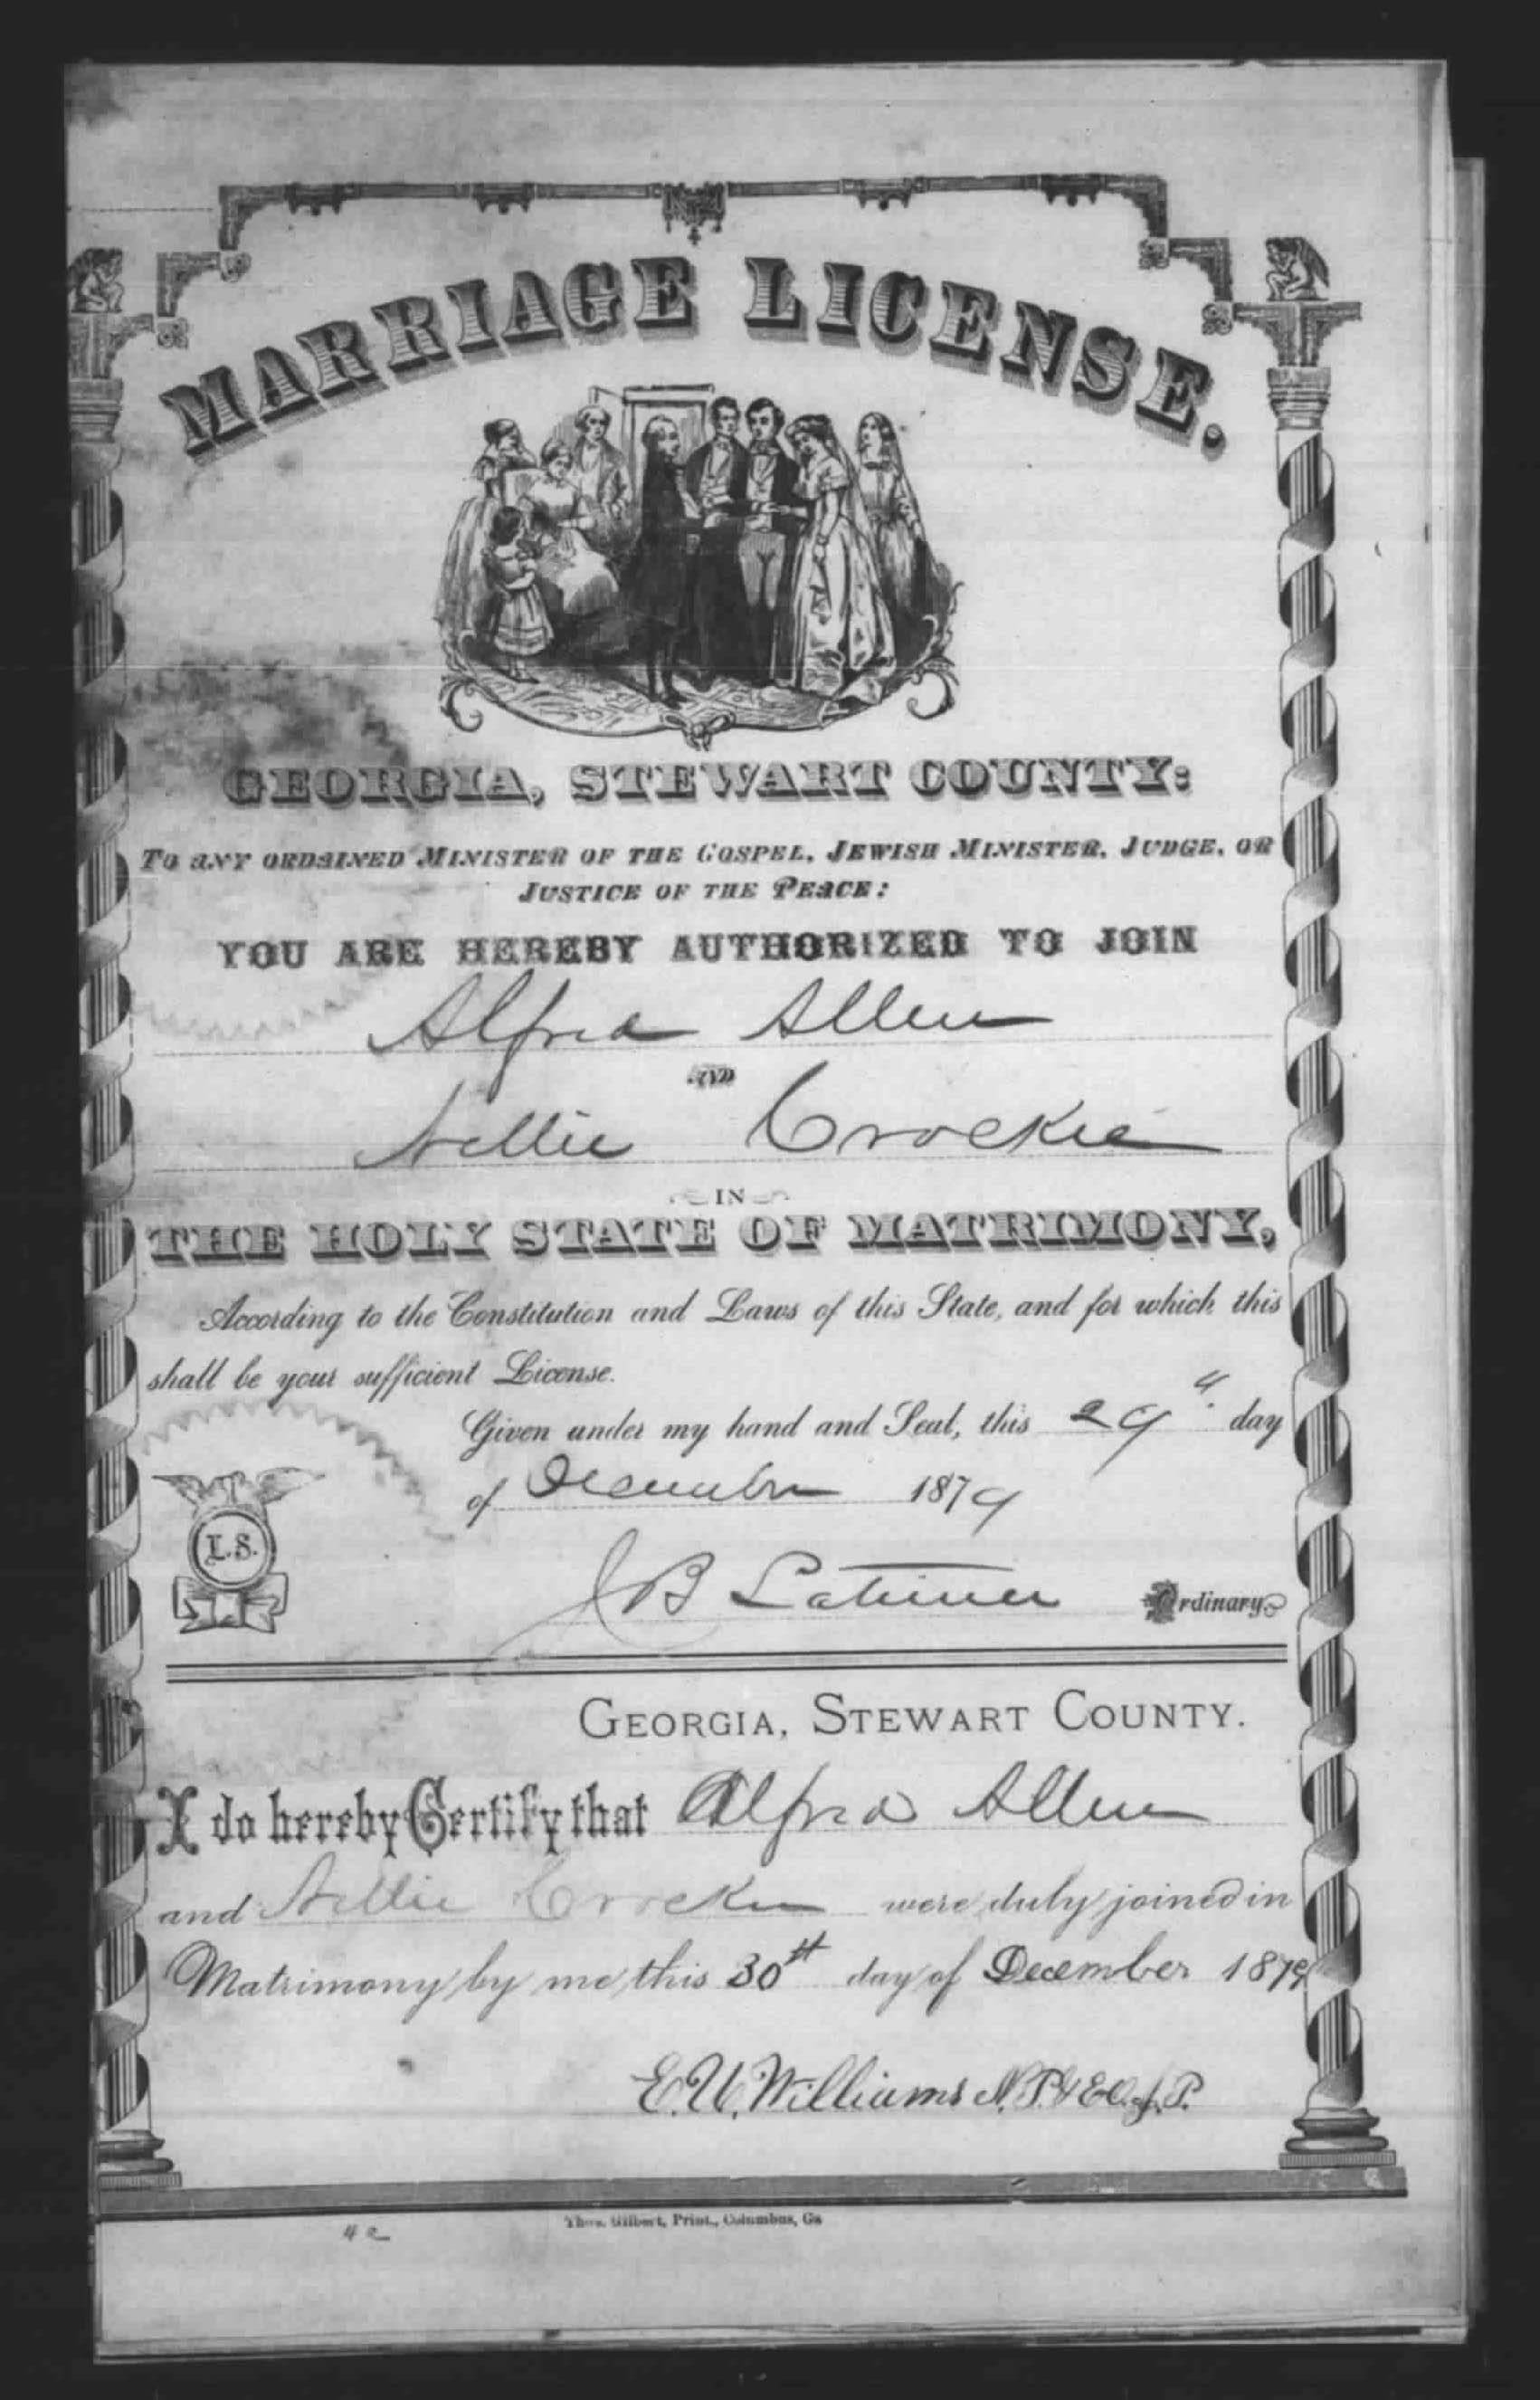 MARRIAGE LICENSE.
GEORGIA, STEWART COUNTY:
TO ANY ORDAINED MINISTER OF THE GOSPEL, JEWISH MINISTER, JUDGE, OR
JUSTICE OF THE PEACE:
YOU ARE HEREBY AUTHORIZED TO JOIN
Alfred Allen
AND
Nellie Crockie
IN
THE HOLY STATE OF MATRIMONY,
According to the Constitution and Laws of this State, and for which this
shall be your sufficient License.
Given under my hand and Seal, this 29" day
of December 1879
L.S.
JB Latimer Ordinary
GEORGIA, STEWART COUNTY.
I do hereby Certify that Alfred Allen
and Nellie were duly joined in
Matrimony by me this 30th day of December 1879
E.U. Williams N.P. & EO. J.P.
Thos. Gilbert, Print., Columbus, Ga
42